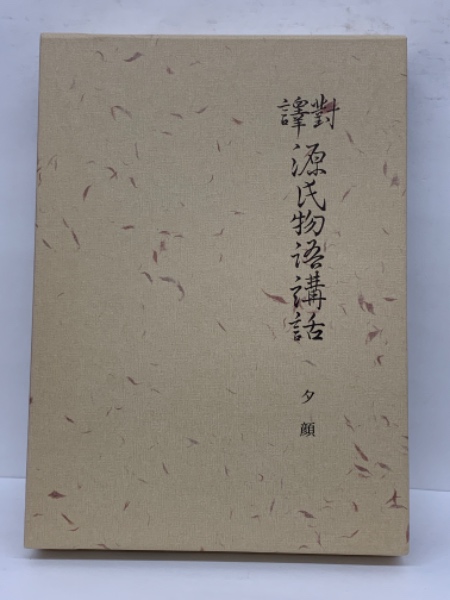 對譯源氏物語講話
夕顔